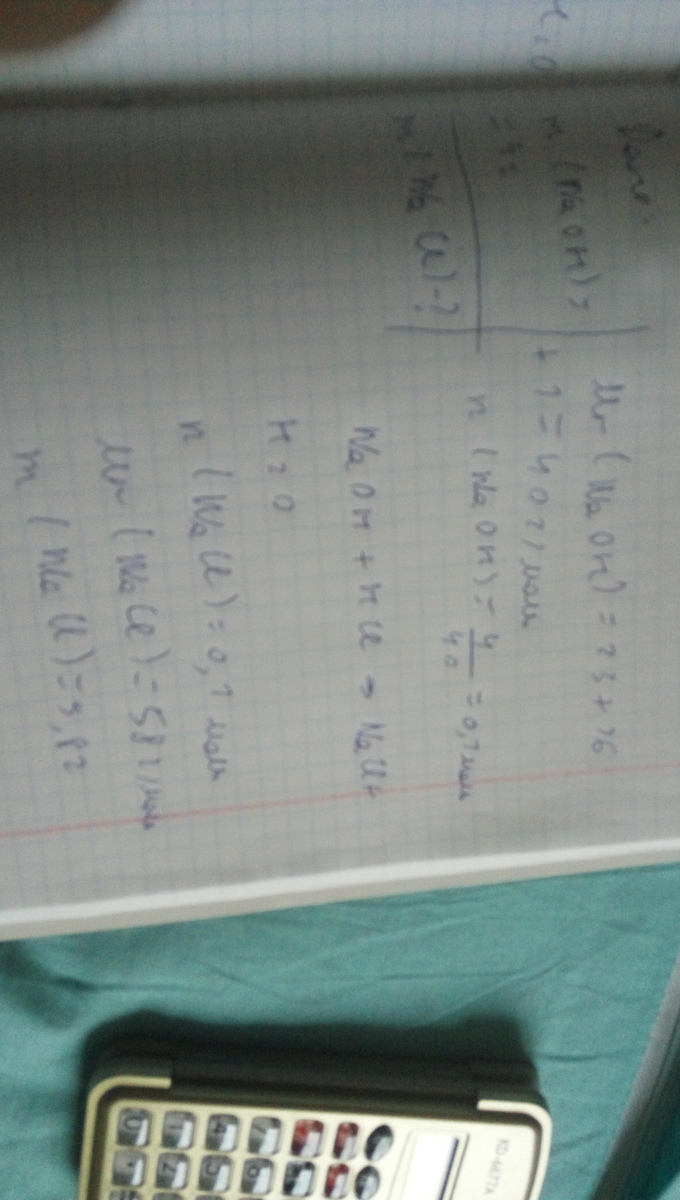 Дано:
m (NaOH) =
= 4г
m (NaCl) - ?
Mr (NaOH) = 23 + 16
+ 1 = 40 г/моль
n (NaOH) = 4/40 = 0,1 моль
NaOH + HCl → NaCl +
H2O
n (NaCl) = 0,1 моль
Mr (NaCl) = 58 г/моль
m (NaCl) = 5,8г
KD-6672A
0 1 4 7
2 5